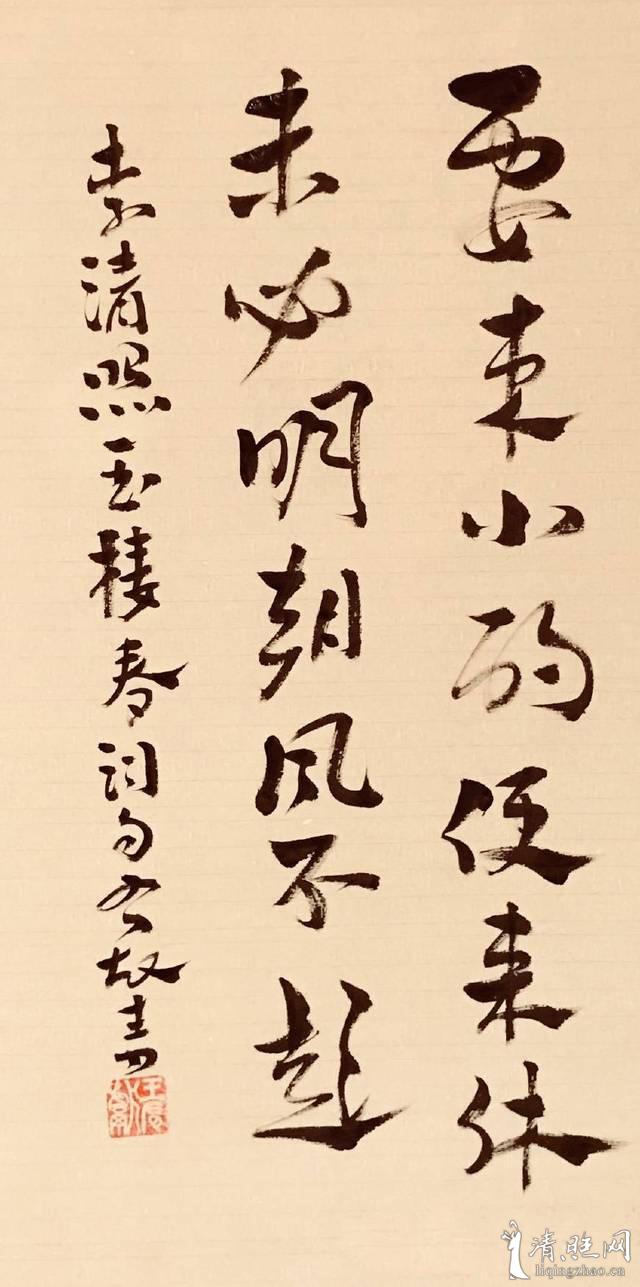 要来小酌便来休
未必明朝风不起
李清照玉楼春词句
书
清照网
liqingzhao.cn